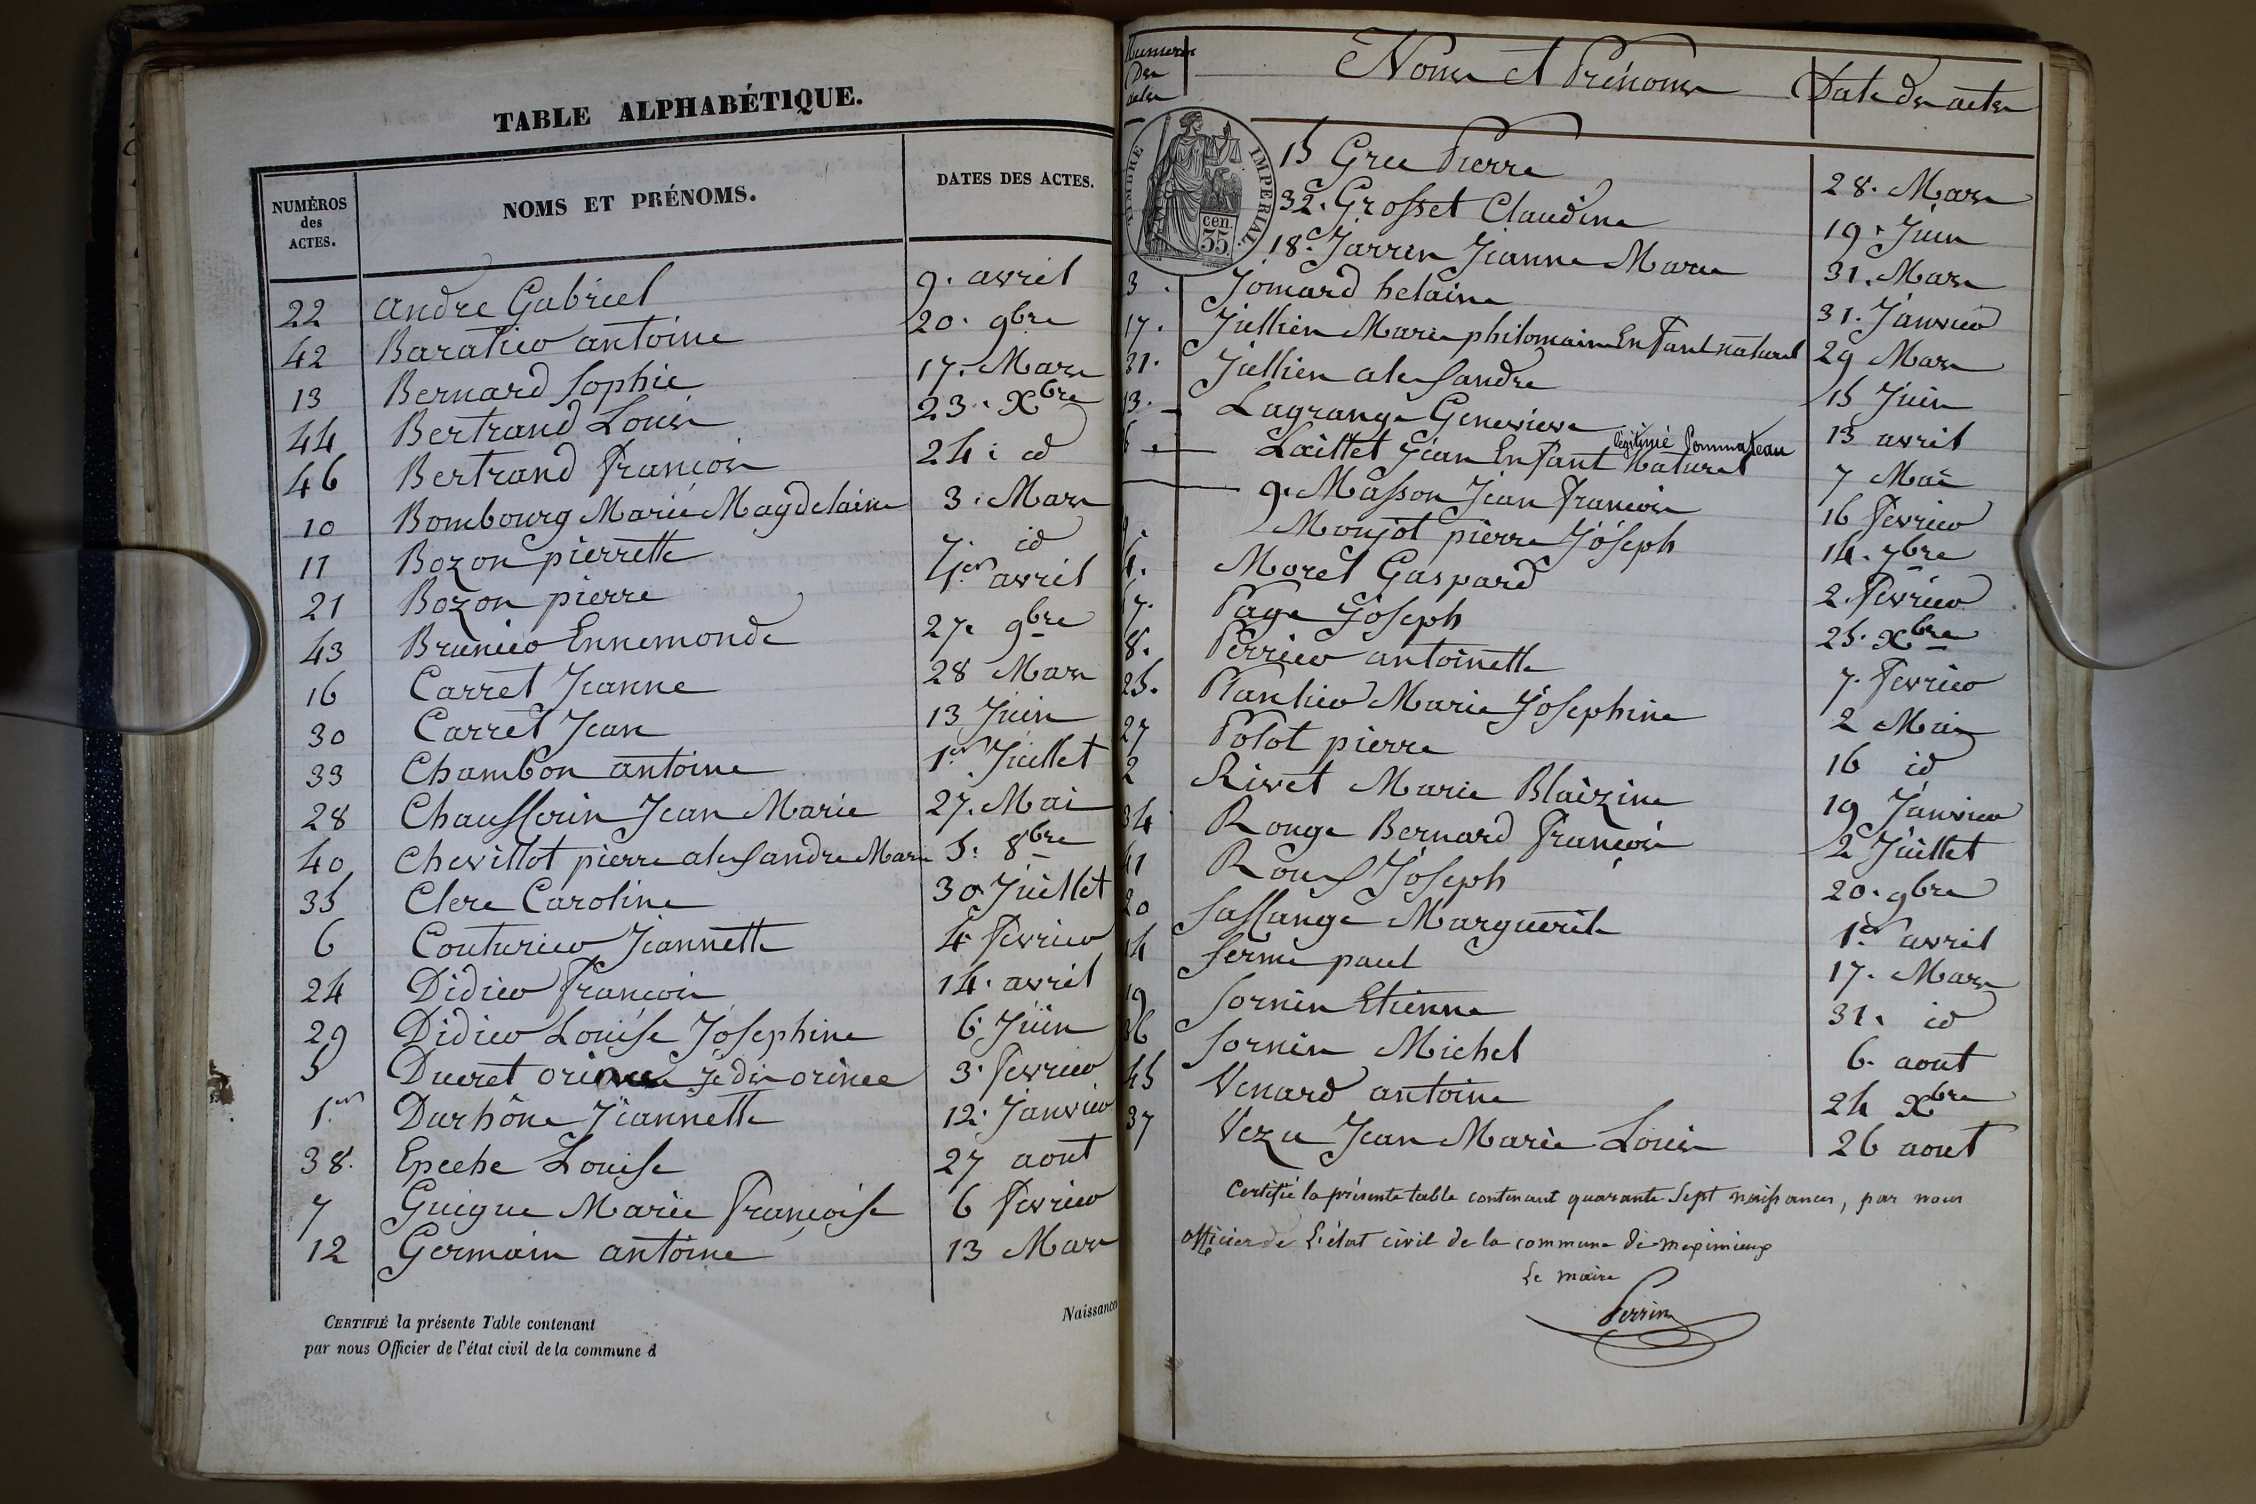 TABLE ALPHABÉTIQUE.
NUMÉROS des ACTES. NOMS ET PRÉNOMS. DATES DES ACTES.
22 andré Gabriel 9. avril
42 Baratier antoine 20. 9bre
13 Bernard Sophie 17. Mars
44 Bertrand Louis 23. Xbre
46 Bertrand François 24. id
10 Bombourg Marie Magdelaine 3. Mars
11 Bozon pierrette 7. id
21 Bozon pierre 1er avril
43 Brunier Ennemonde 27. 9bre
16 Carret Jeanne 28 Mars
30 Carret Jean 13 Juin
33 Chambon antoine 1er Juillet
28 Chausserin Jean Marie 27. Mai
40 Chevillot pierre alesandre Marie 5. 8bre
35 Clere Caroline 30 Juillet
6 Couturier Jeannette 4 Fevrier
24 Didier François 14. avril
29 Didier Louise Josephine 6 Juin
5 Ducret je dis orinee 3. Fevrier
1er Durhône Jeannette 12. Janvier
38. Epeche Louise 27 aout
7 Guigue Marie Françoise 6 Fevrier
12 Germain antoine 13 Mars
CERTIFIÉ la présente Table contenant Naissances
par nous Officier de l'état civil de la commune d
Numeros Des actes Noms et Prénoms Date des actes
TIMBRE IMPERIAL.
cen. 35.
15 Gree Pierre 28. Mars
32. Grosset Claudine 19. Juin
18. Jarren Jeanne Marie 31. Mars
3. Jomard helaine 31. Janvier
17. Jullien Marie philomaine Enfant naturel 29 Mars
31. Jullien alesandre 15 Juin
13. Lagrange Genevieve 13 avril
légitimé Pommateau
Laittet Jean Enfant Naturel 7 Mai
9. Masson Jean François 16 Fevrier
Monjot pierre Joseph 14. 7bre
4. Morel Gaspard 2. Fevrier
47. Page Joseph 25. Xbre
8. Perrier antoinette 7. Fevrier
25. Plantier Marie Josephine 2 Mai
27 Polot pierre 16 id
2 Rivet Marie Blaizine 19 Janvier
34 Ronge Bernard François 2 Juillet
41 Rous Joseph 20. 9bre
20 Sallange Marguerite 1er avril
14 Serme paul 17. Mars
19 Sornin Etienne 31. id
36 Sornin Michel 6. aout
45 Venard antoine 24 Xbre
37 Vezu Jean Marie Louis 26 aout
Certifié la présente table contenant quarante Sept naissances, par nous
officier de L'état civil de la commune de meximieux
Le maire
Perrin